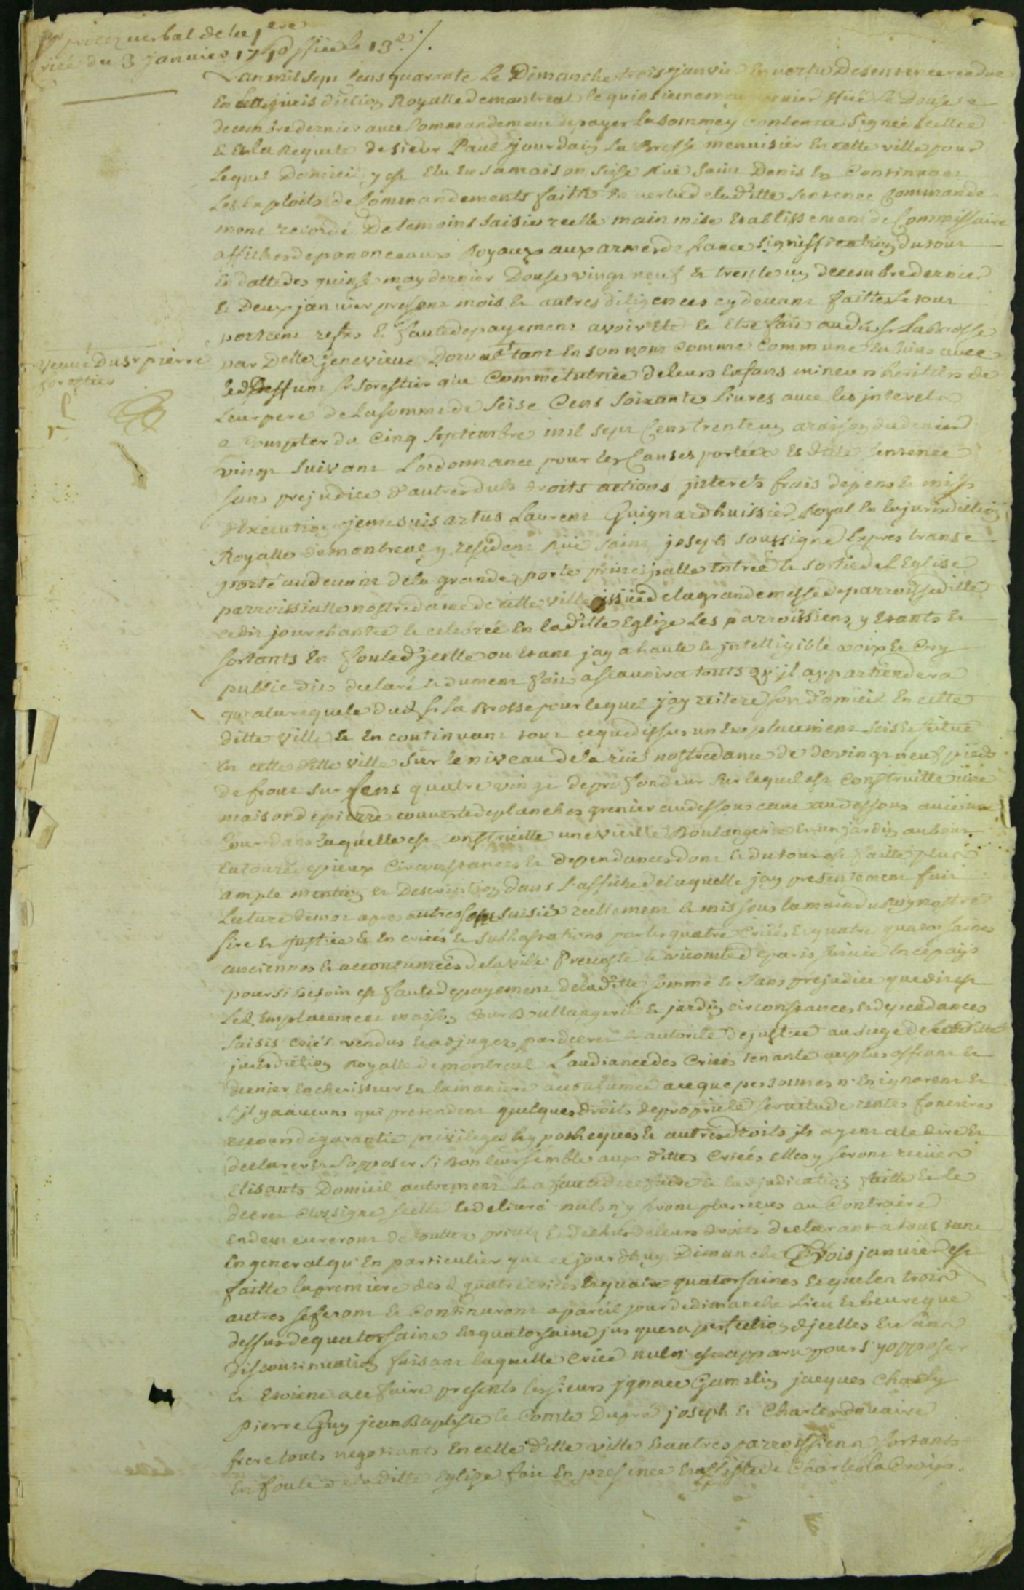 procez verbal de la 1ere
criée du 3 janvier 1740
Lan mil sept Cens quarante le Dimanche trois janvier En vertu de sentence rendue
En cette jurisdiction Royalle de montreal le quinsieme may dernier
decembre dernier avec Commandement de payer la somme y contenue signée scellée
Et a la Requete de sieur Paul jourdain La Brosse menuisier En cette ville pour
Lequel domicil y est Elu En sa maison seise Rue Saint Denis En Continuant
Les Exploits de Commandements faits En vertu de la ditte sentence Commande
ment recordé De temoins saisies reelle main mise Etablissement de Commissaire
affiches de panonceaux Royaux aux armes de france signiffication du tout
En datte des quinse may dernier Douse vingt neuf & trente un decembre dernier
& Deux janvier present mois & autres diligences cy devant faittes le tout
portant refus & faute de payement avoir Eté & Etre fait audit Sr Labrosse
veuve Du Sr pierre
forestier
par Delle Genevieve tant En son nom Comme Commune En biens avec
le deffunt Sr forestier que Comme tutrice de leurs Enfans mineurs heritiers de
Leur pere de La somme de seise Cens soixante livres avec les interets
a Compter du Cinq septembre mil sept Cens trente un a raison du denier
vingt suivant L'ordonnance pour les Causes portées Es ditte sentence
sans prejudice d'autres dubs droits actions jnterets frais depens & mises
d'Execution je me suis artus Laurent Guignard huissier Royal En la jurisdiction
Royalle de montreal y resident Rue saint joseph soussigné Expres transe
porté au devant de la grande porte principalle Entrée & sortie de L'Eglise
parroissialle nostre dame de cette ville issüe de la grande messe de parroisse ditte
ce dit jour chantée & celebrée En la ditte Eglize Les parroissiens y Etants &
sortants En foule d'jcelle ou Etant jay a haute & jntelligible voix & Cry
public dit declaré & dument fait a scavoir a touts qu'jl appartiendera
qu'a la requete dudt Sr La Brosse pour lequel jay reiteré son domicil En cette
ditte ville & En continuant tout ce que dessus un Emplacement seise & situé
En cette ditte ville sur le niveau de la rüe nostre dame de vingt neuf pieds
de front sur Cens quatre vingt de profondeur sur lequel est Construitte une
maison de pierre couverte de planches grenier au dessous cave au dessous
Cour dans laquelle est construitte une vieille Boulangerie & un jardin au bout
Entouré de pieux Circonstances & dependances dont & du tout est faitte plus
ample mention & Description dans l'affiche de laquelle jay presentement fait
Lecture saisis reellement & mis sous la main du Roy nostre
sire & justice & En criées & subhastations par les quatre Criées Et quatre quatorsaines
anciennes & accoutumées de la ville Prevosté & vicomté de paris suivie En ce pays
pour si besoin est faute de payement de la ditte somme & sans prejudice que dessus
Led. Emplacement maison Cour Boullangerie & jardin circonstances & dependances
saisis criés vendus & adjugés par decret & autorité de justice au siege de cette ditte
jurisdiction Royalle de montreal L'audiance des Criées tenante au plus offrant &
dernier Encherisseur En la maniere accoutumée a ce que personne n'En ignorent &
s'jl y a aucuns qui pretendent quelques droits de proprieté servitude rentes foncieres
recours de garantie privileges hypotheques & autres droits jls ayent a le dire &
declarer & s'opposer si Bon leur semble aux dittes Criées Elles y seront receües
Elisants Domicil autrement & a faute de ce faire & la adjudication faitte & le
decret signé scellé & delivré nuls n'y seront plus receus au Contraire
En demeureront deboutés privés & dechus de leurs droits declarant a tous tant
En general qu'En particulier que ce jourd'huy Dimanche trois janvier Est
faitte la premiere des d. quatre criées & quatre quatorsaines & que les trois
autres se feront & Continuront a pareil jour de dimanche lieu & heure que
dessus de quatorsaine En quatorsaine jusques a perfection d'jcelles & sans
discontinuation faisant laquelle Criée nul n'est apparu pour s'y opposer
& Etoient a ce faire presents les sieurs jgnace Gamelin jacques Charly
Pierre Guy jean Baptiste le Comte Dupré joseph & Charles douaire
frere touts negotiants En cette ditte ville & autres parroissiens sortants
En foule de la ditte Eglize fait En presence & assisté de Charles